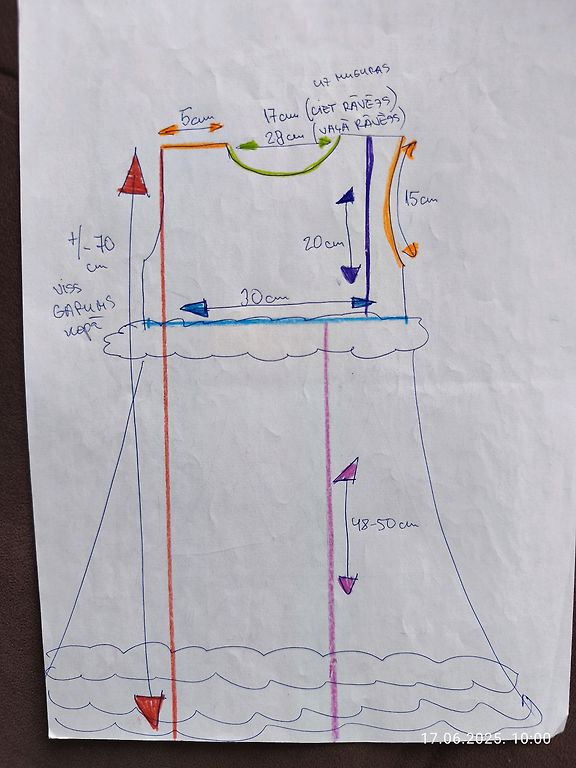 UZ MUGURAS
5cm
17cm (CIET RĀVĒJS)
28cm (VAĻĀ RĀVĒJS)
15cm
+/- 70
cm
viss
GARUMS
kopā
20cm
30cm
48-50cm
17.06.2025. 10:00